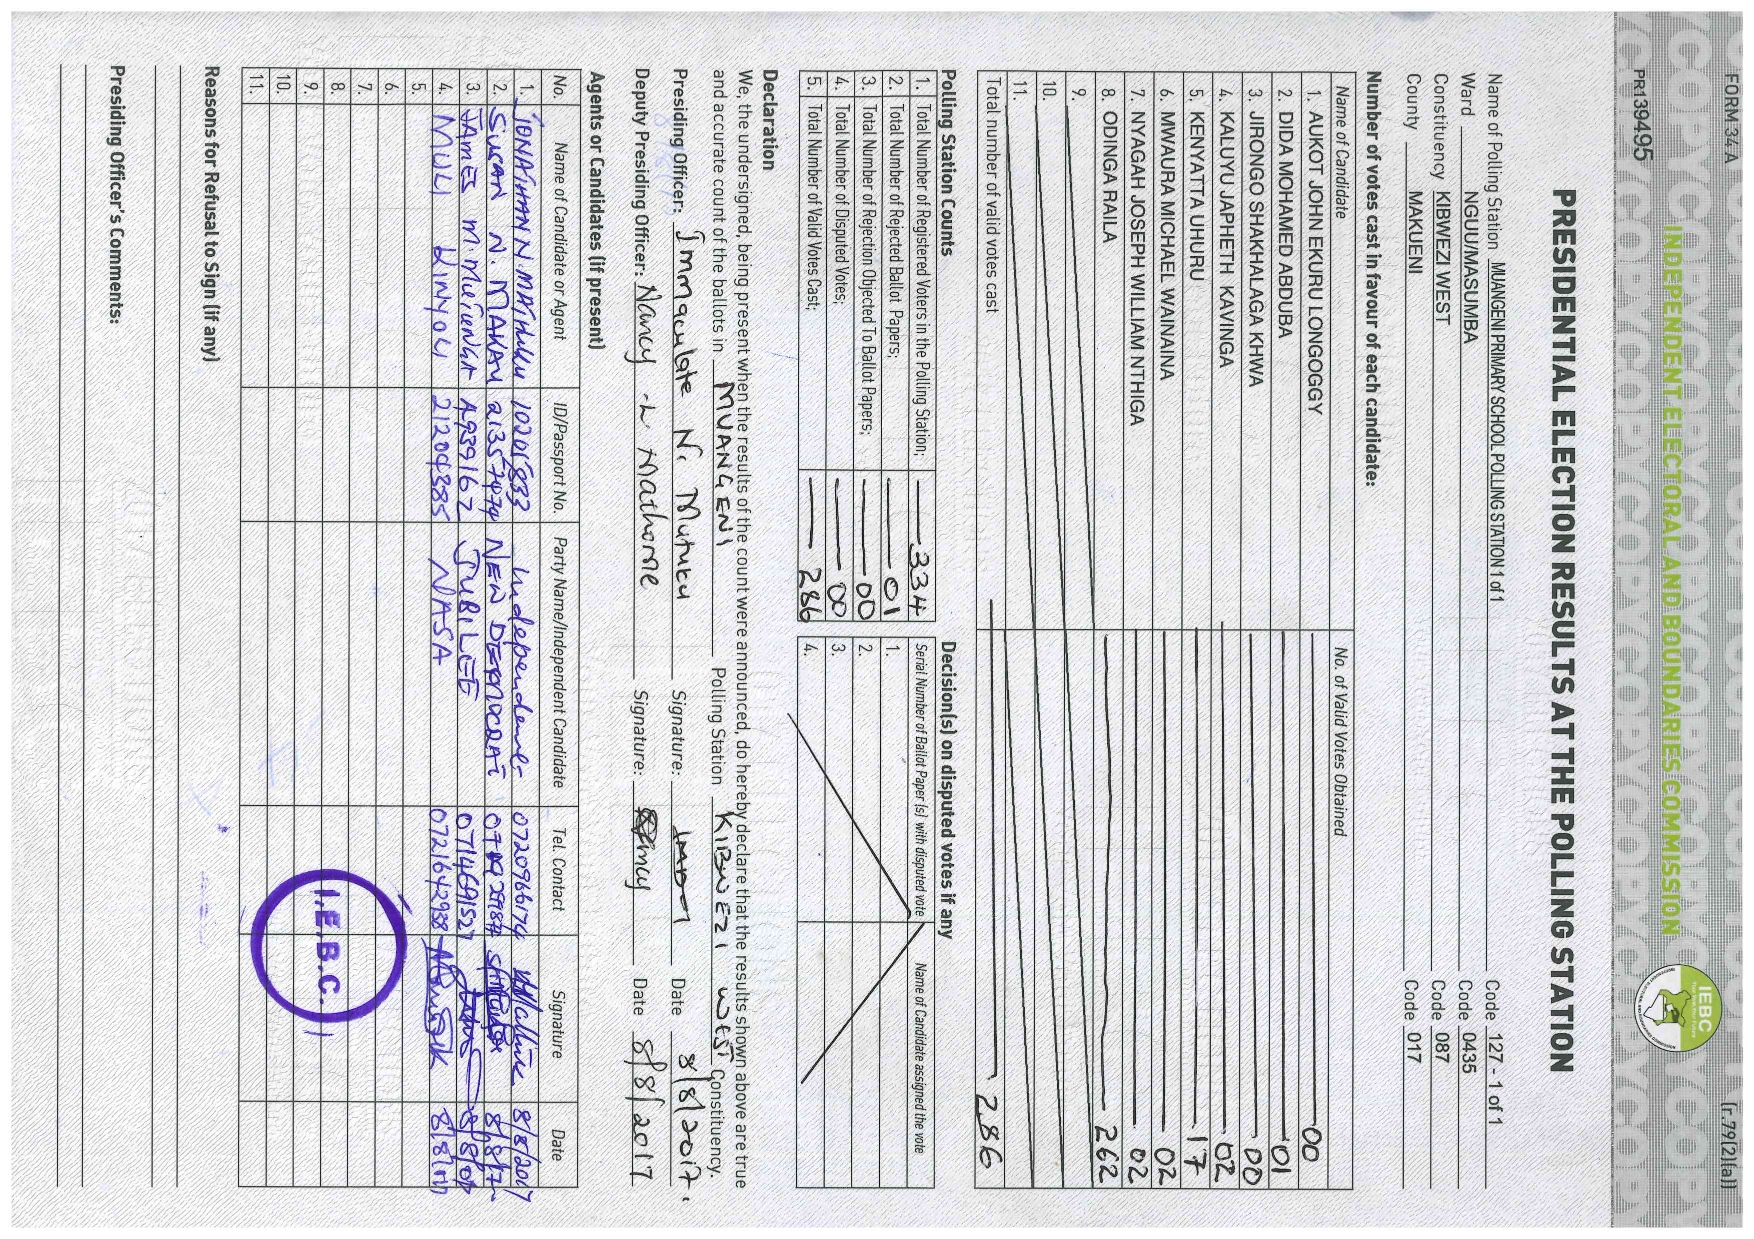 FORM 34 A
[r.79(2)(a)]
INDEPENDENT ELECTORAL AND BOUNDARIES COMMISSION
IEBC
PR139495
PRESIDENTIAL ELECTION RESULTS AT THE POLLING STATION
Name of Polling Station MUANGENI PRIMARY SCHOOL POLLING STATION 1 of 1 Code 127 - 1 of 1
Ward NGUU/MASUMBA Code 0435
Constituency KIBWEZI WEST Code 087
County MAKUENI Code 017
Number of votes cast in favour of each candidate:
Name of Candidate No. of Valid Votes Obtained
1. AUKOT JOHN EKURU LONGOGGY 00
2. DIDA MOHAMED ABDUBA 01
3. JIRONGO SHAKHALAGA KHWA 00
4. KALUYU JAPHETH KAVINGA 02
5. KENYATTA UHURU 17
6. MWAURA MICHAEL WAINAINA 02
7. NYAGAH JOSEPH WILLIAM NTHIGA 02
8. ODINGA RAILA 262
9.
10.
11.
Total number of valid votes cast 286
Polling Station Counts
1. Total Number of Registered Voters in the Polling Station; 334
2. Total Number of Rejected Ballot Papers; 01
3. Total Number of Rejection Objected To Ballot Papers; 00
4. Total Number of Disputed Votes; 00
5. Total Number of Valid Votes Cast; 286
Decision(s) on disputed votes if any
Serial Number of Ballot Paper (s) with disputed vote Name of Candidate assigned the vote
1.
2.
3.
4.
Declaration
We, the undersigned, being present when the results of the count were announced, do hereby declare that the results shown above are true
and accurate count of the ballots in MUANGENI Polling Station KIBWEZI WEST Constituency.
Presiding Officer: Immaculate N. Mutuku Signature: Date 8/8/2017
Deputy Presiding Officer: Nancy Signature: Date 8/8/2017
Agents or Candidates (if present)
No. Name of Candidate or Agent ID/Passport No. Party Name/Independent Candidate Tel. Contact Signature Date
1. JONATHAN N. 10201833 Independent 0720966174 8/8/2017
2. SUSAN N. NEW DEMOCRAT 8/8/17
3. JAMES M. A939167 JUBILEE 0714691527
4. MULI KINYOU 21204385 NASA 0721642938
5.
6.
7.
8.
9.
10.
11.
I.E.B.C.
Reasons for Refusal to Sign (if any)
Presiding Officer's Comments: